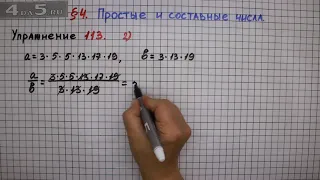 4АО5.RU
§4. Простые и составные числа.
Упражнение 113. 2)
a=3·5·5·13·17·19, b=3·13·19
a/b = 3·5·5·13·17·19/3·13·19 =